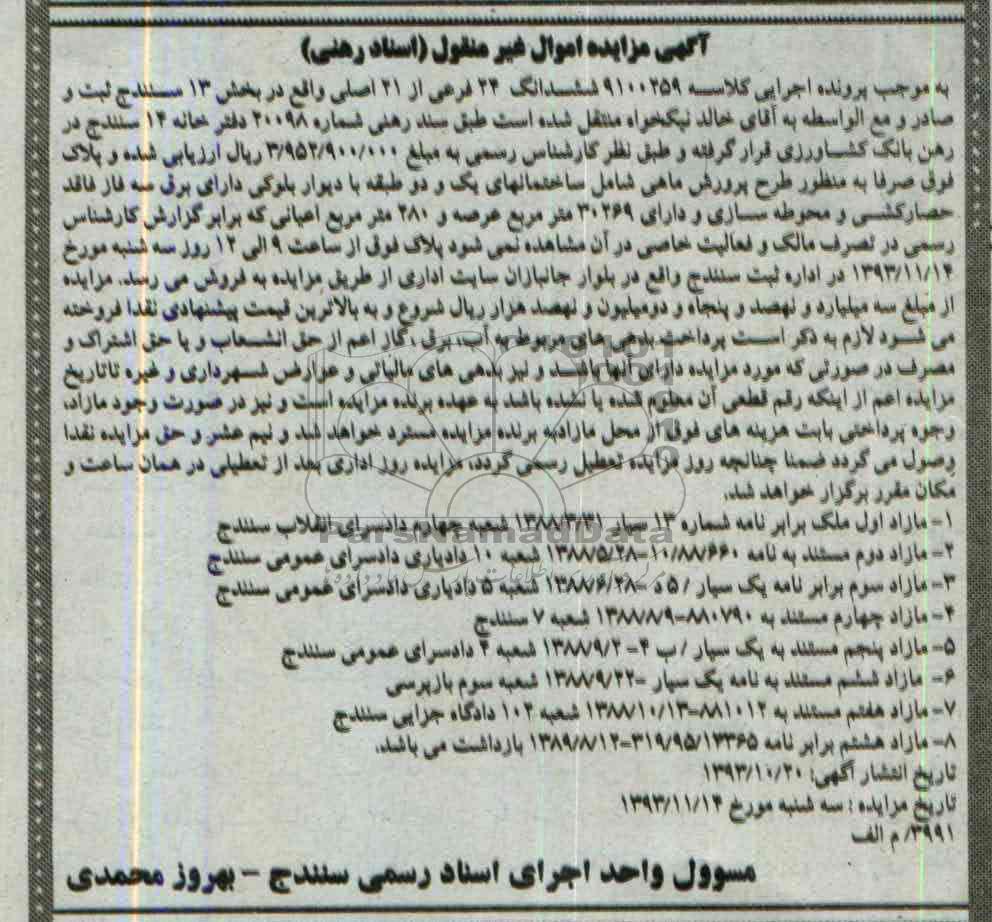 آگهی مزایده اموال غیر منقول (اسناد رهنی)
به موجب پرونده اجرایی کلاسه ۹۱۰۰۲۵۹ ششدانگ ۲۴ فرعی از ۲۱ اصلی واقع در بخش ۱۳ سنندج ثبت و
صادر و مع الواسطه به آقای خالد نیکخواه منتقل شده است طبق سند رهنی شماره ۲۰۰۹۸ دفتر خانه ۱۴ سنندج در
رهن بانک کشاورزی قرار گرفته و طبق نظر کارشناس رسمی به مبلغ ۳/۹۵۲/۹۰۰/۰۰۰ ریال ارزیابی شده و پلاک
فوق صرفا به منظور طرح پرورش ماهی شامل ساختمانهای یک و دو طبقه با دیوار بلوکی دارای برق سه فاز فاقد
حصارکشی و محوطه سازی و دارای ۳۰۲۶۹ متر مربع عرصه و ۲۸۰ متر مربع اعیانی که برابر گزارش کارشناس
رسمی در تصرف مالک و فعالیت خاصی در آن مشاهده نمی شود پلاک فوق از ساعت ۹ الی ۱۲ روز سه شنبه مورخ
۱۳۹۳/۱۱/۱۴ در اداره ثبت سنندج واقع در بلوار جانبازان سایت اداری از طریق مزایده به فروش می رسد. مزایده
از مبلغ سه میلیارد و نهصد و پنجاه و دومیلیون و نهصد هزار ریال شروع و به بالاترین قیمت پیشنهادی نقدا فروخته
می شود لازم به ذکر است پرداخت بدهی های مربوط به آب، برق ، گاز اعم از حق انشعاب و یا حق اشتراک و
مصرف در صورتی که مورد مزایده دارای آنها باشد و نیز بدهی های مالیاتی و عوارض شهرداری و غیره تاتاریخ
مزایده اعم از اینکه رقم قطعی آن معلوم شده یا نشده باشد به عهده برنده مزایده است و نیز در صورت وجود مازاد،
وجوه پرداختی بابت هزینه های فوق از محل مازادبه برنده مزایده مسترد خواهد شد و نیم عشر و حق مزایده نقدا
وصول می گردد ضمنا چنانچه روز مزایده تعطیل رسمی گردد، مزایده روز اداری بعد از تعطیلی در همان ساعت و
مکان مقرر برگزار خواهد شد.
۱- مازاد اول ملک برابر نامه شماره ۱۳ سیار ۱۳۸۸/۳/۳۱ شعبه چهارم دادسرای انقلاب سنندج
۲- مازاد دوم مستند به نامه ۱۰/۸۸/۶۶۰-۱۳۸۸/۵/۲۸ شعبه ۱۰ دادیاری دادسرای عمومی سنندج
۳- مازاد سوم برابر نامه یک سیار / ۵ د -۱۳۸۸/۶/۲۸ شعبه ۵ دادیاری دادسرای عمومی سنندج
۴- مازاد چهارم مستند به ۸۸۰۷۹۰-۱۳۸۸/۸/۹ شعبه ۷ سنندج
۵- مازاد پنجم مستند به یک سیار / ب ۴- ۱۳۸۸/۹/۲ شعبه ۴ دادسرای عمومی سنندج
۶- مازاد ششم مستند به نامه یک سیار -۱۳۸۸/۹/۲۲ شعبه سوم بازپرسی
۷- مازاد هفتم مستند به ۸۸۱۰۱۲-۱۳۸۸/۱۰/۱۳ شعبه ۱۰۲ دادگاه جزایی سنندج
۸- مازاد هشتم برابر نامه ۳۱۹/۹۵/۱۳۳۶۵-۱۳۸۹/۸/۱۲ بازداشت می باشد.
تاریخ انتشار آگهی: ۱۳۹۳/۱۰/۲۰
تاریخ مزایده : سه شنبه مورخ ۱۳۹۳/۱۱/۱۴
۳۹۹۱/ م الف
مسوول واحد اجرای اسناد رسمی سنندج - بهروز محمدی
ParsNamadData